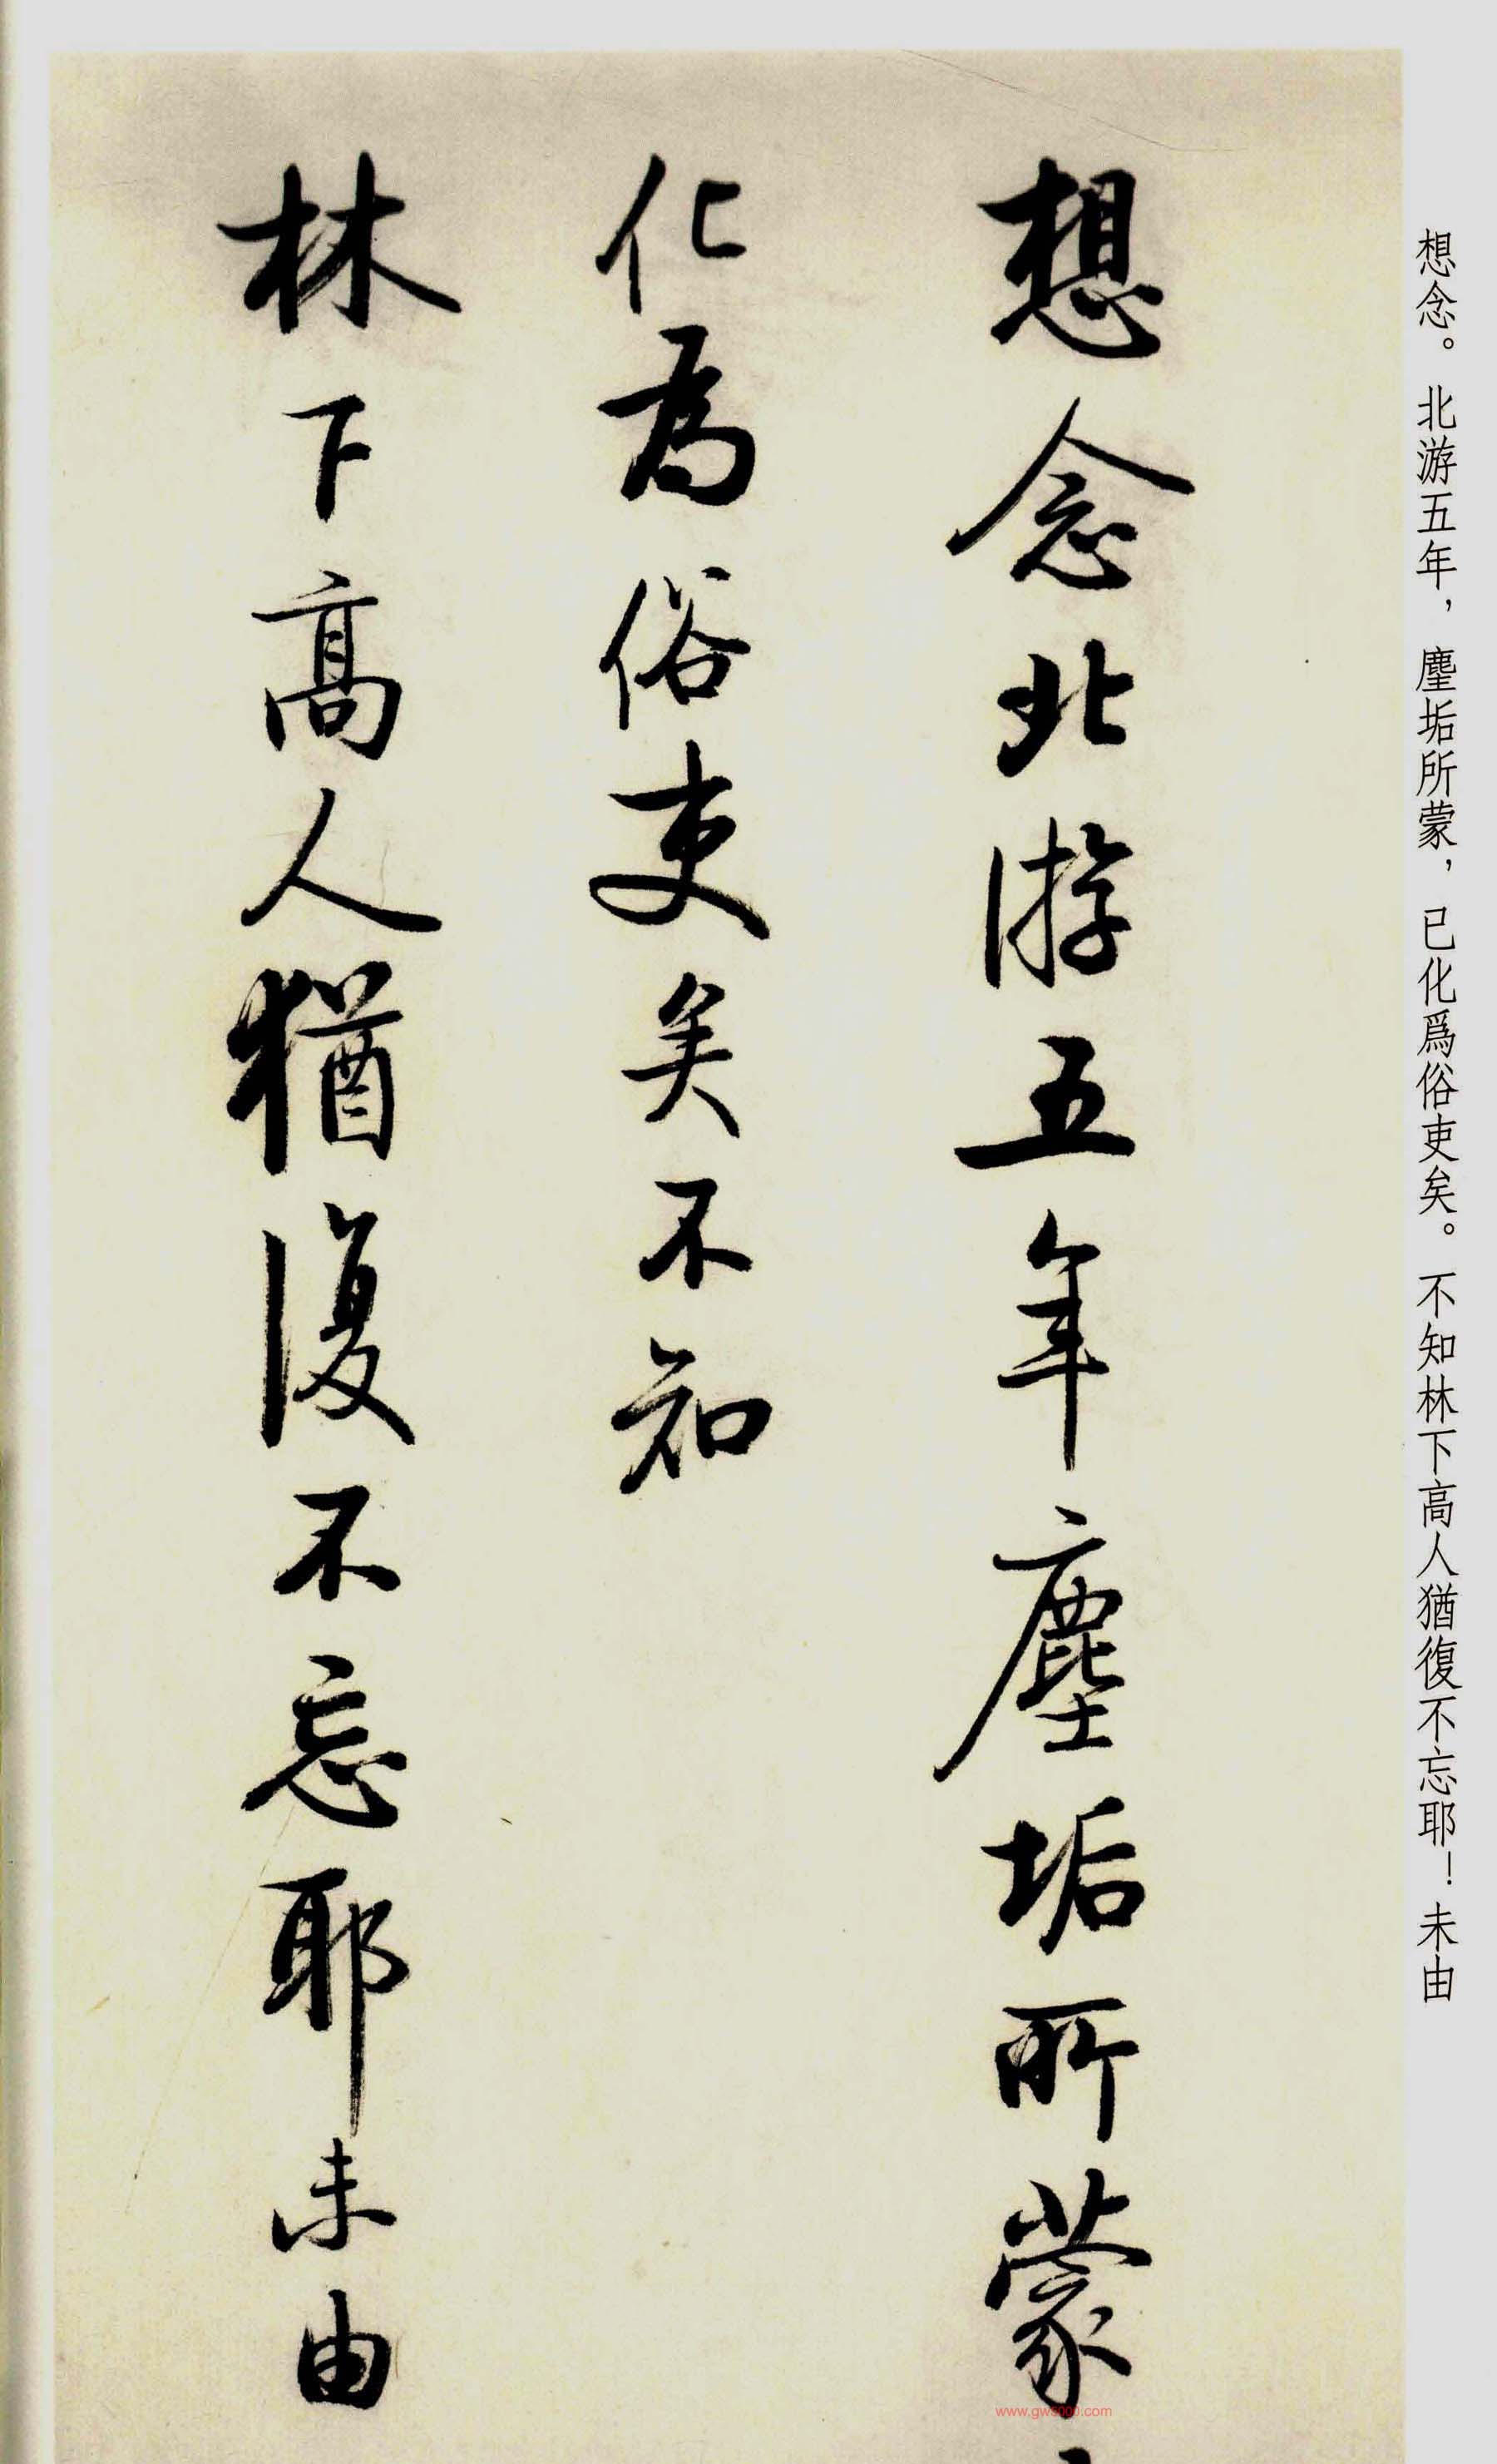 想念。北游五年，塵垢所蒙，已化爲俗吏矣。不知林下高人猶復不忘耶！未由
想念北游五年塵垢所蒙
化為俗吏矣不知
林下高人猶復不忘耶未由
www.gw5000.com